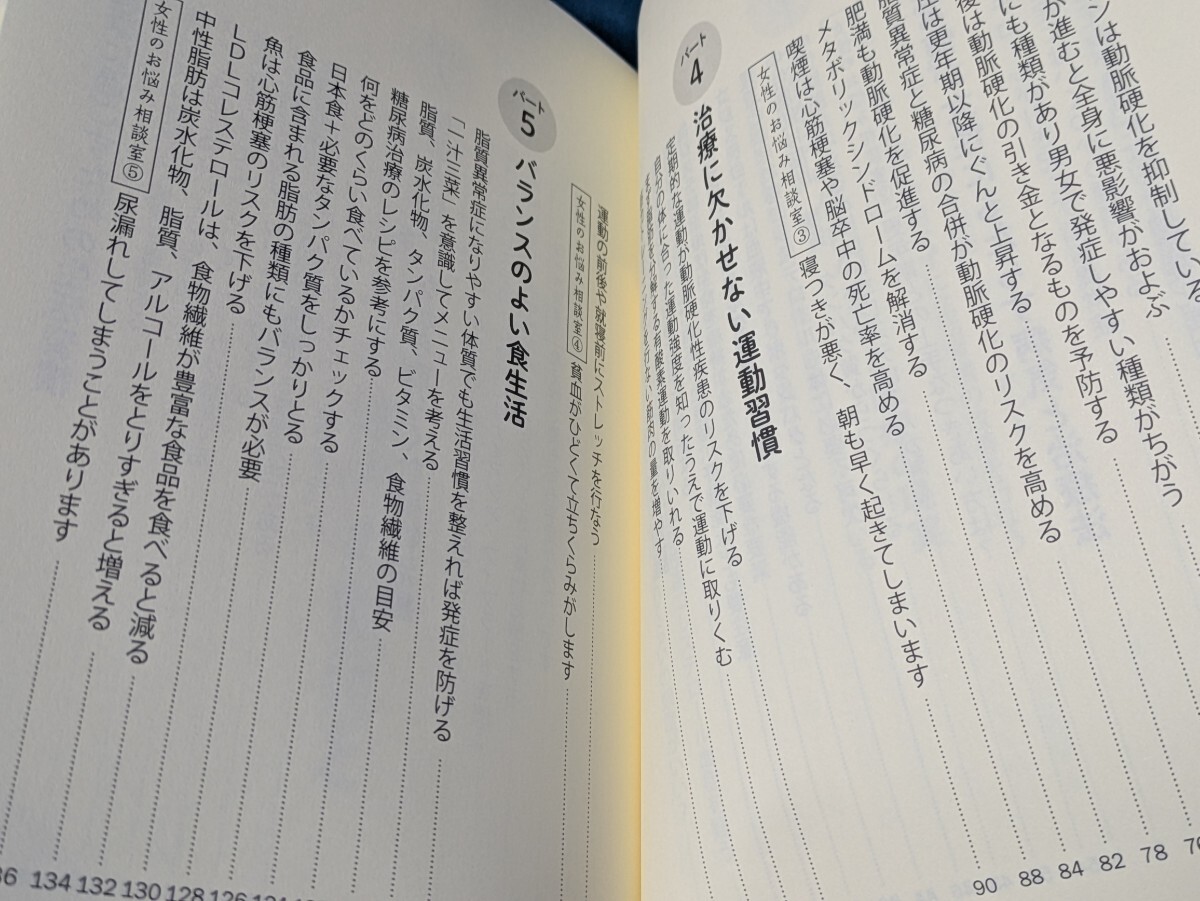 ンは動脈硬化を抑制している
が進むと全身に悪影響がおよぶ
にも種類があり男女で発症しやすい種類がちがう 76
後は動脈硬化の引き金となるものを予防する 78
圧は更年期以降にぐんと上昇する 82
脂質異常症と糖尿病の合併が動脈硬化のリスクを高める 84
肥満も動脈硬化を促進する
メタボリックシンドロームを解消する 88
喫煙は心筋梗塞や脳卒中の死亡率を高める 90
女性のお悩み相談室③ 寝つきが悪く、朝も早く起きてしまいます
パート4 治療に欠かせない運動習慣
定期的な運動が動脈硬化性疾患のリスクを下げる
自分の体に合った運動強度を知ったうえで運動に取りくむ
まずは脂肪を分解する有酸素運動を取りいれる
行ない筋肉の量を増やす
運動の前後や就寝前にストレッチを行なう
女性のお悩み相談室④ 貧血がひどくて立ちくらみがします
パート5 バランスのよい食生活
脂質異常症になりやすい体質でも生活習慣を整えれば発症を防げる
「一汁三菜」を意識してメニューを考える
脂質、炭水化物、タンパク質、ビタミン、食物繊維の目安
糖尿病治療のレシピを参考にする
何をどのくらい食べているかチェックする
日本食+必要なタンパク質をしっかりとる
食品に含まれる脂肪の種類にもバランスが必要
魚は心筋梗塞のリスクを下げる 126
LDLコレステロールは、食物繊維が豊富な食品を食べると減る 128
中性脂肪は炭水化物、脂質、アルコールをとりすぎると増える 130
女性のお悩み相談室⑤ 尿漏れしてしまうことがあります 132
134
36